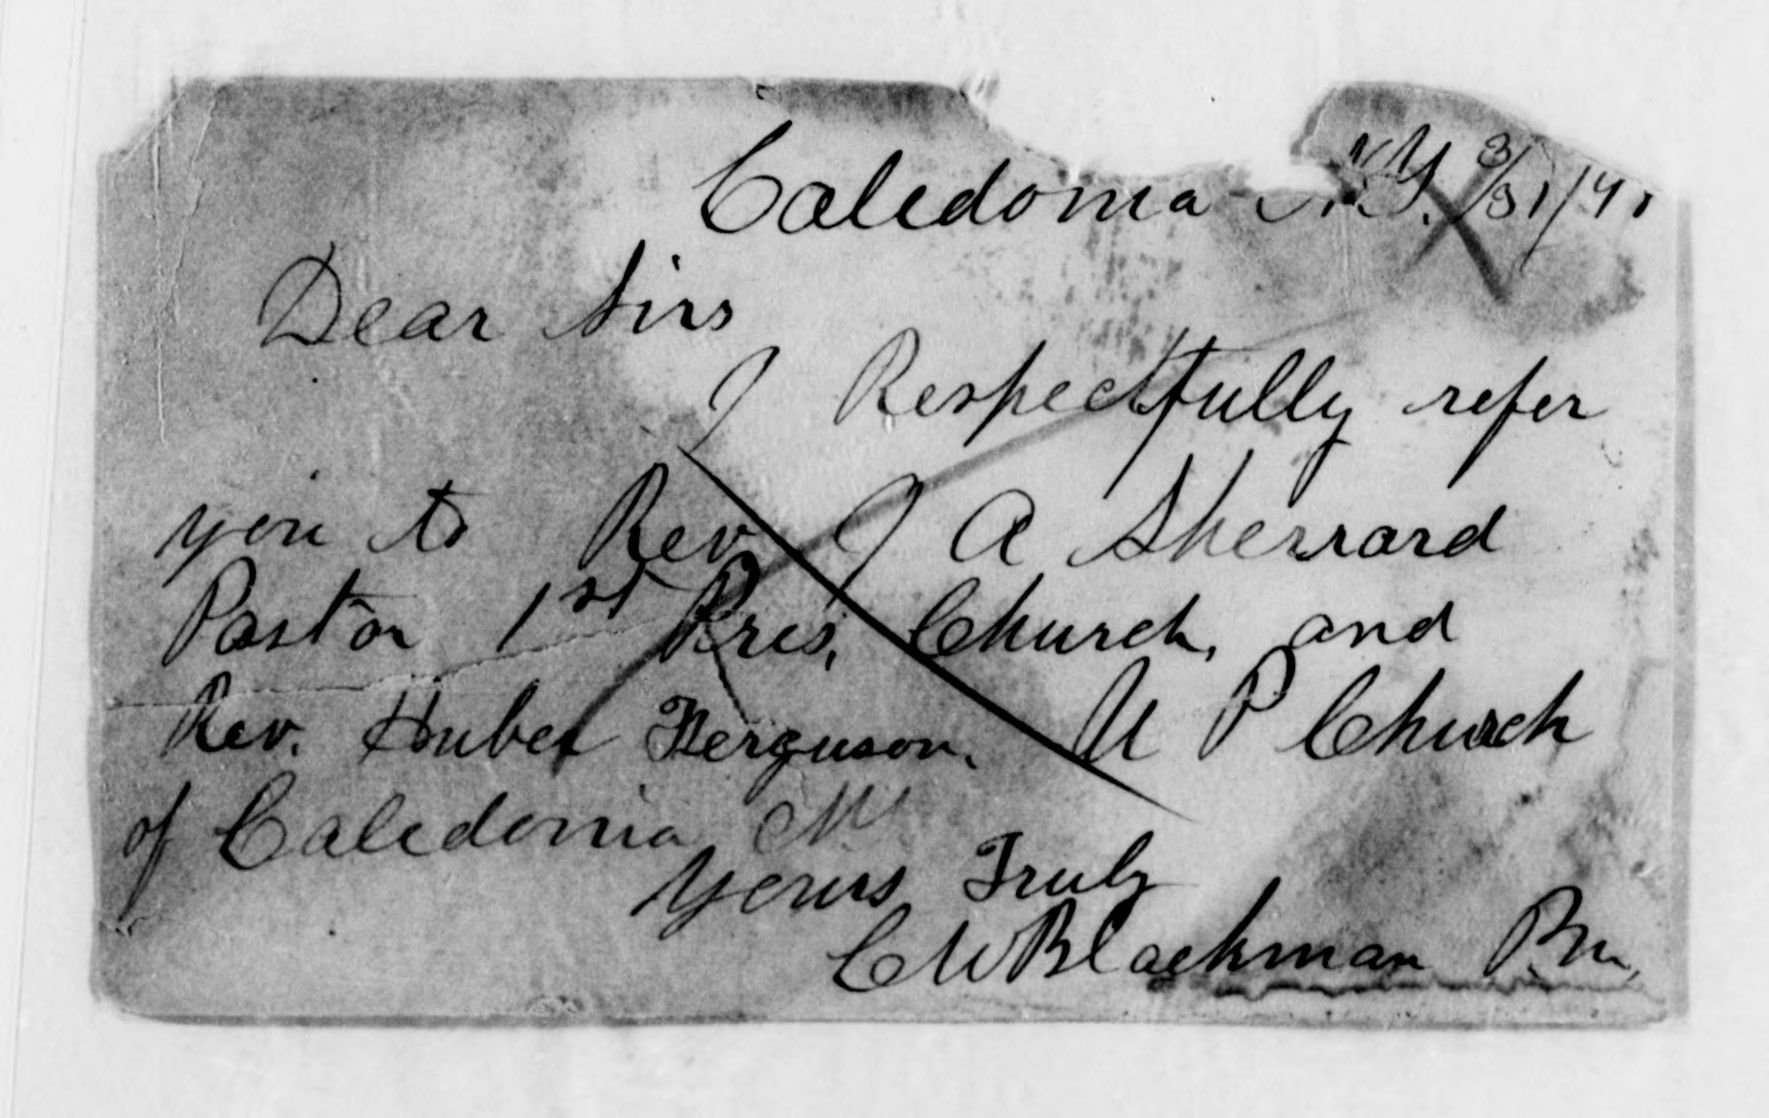 Caledonia N.Y. 3/31/91
Dear Sirs
I Respectfully refer
you to Rev J A Sherrard
Pastor 1st Pres. Church, and
Rev. Huber Ferguson. U P Church
of Caledonia N
Yours Truly
C W Blackman Pm,